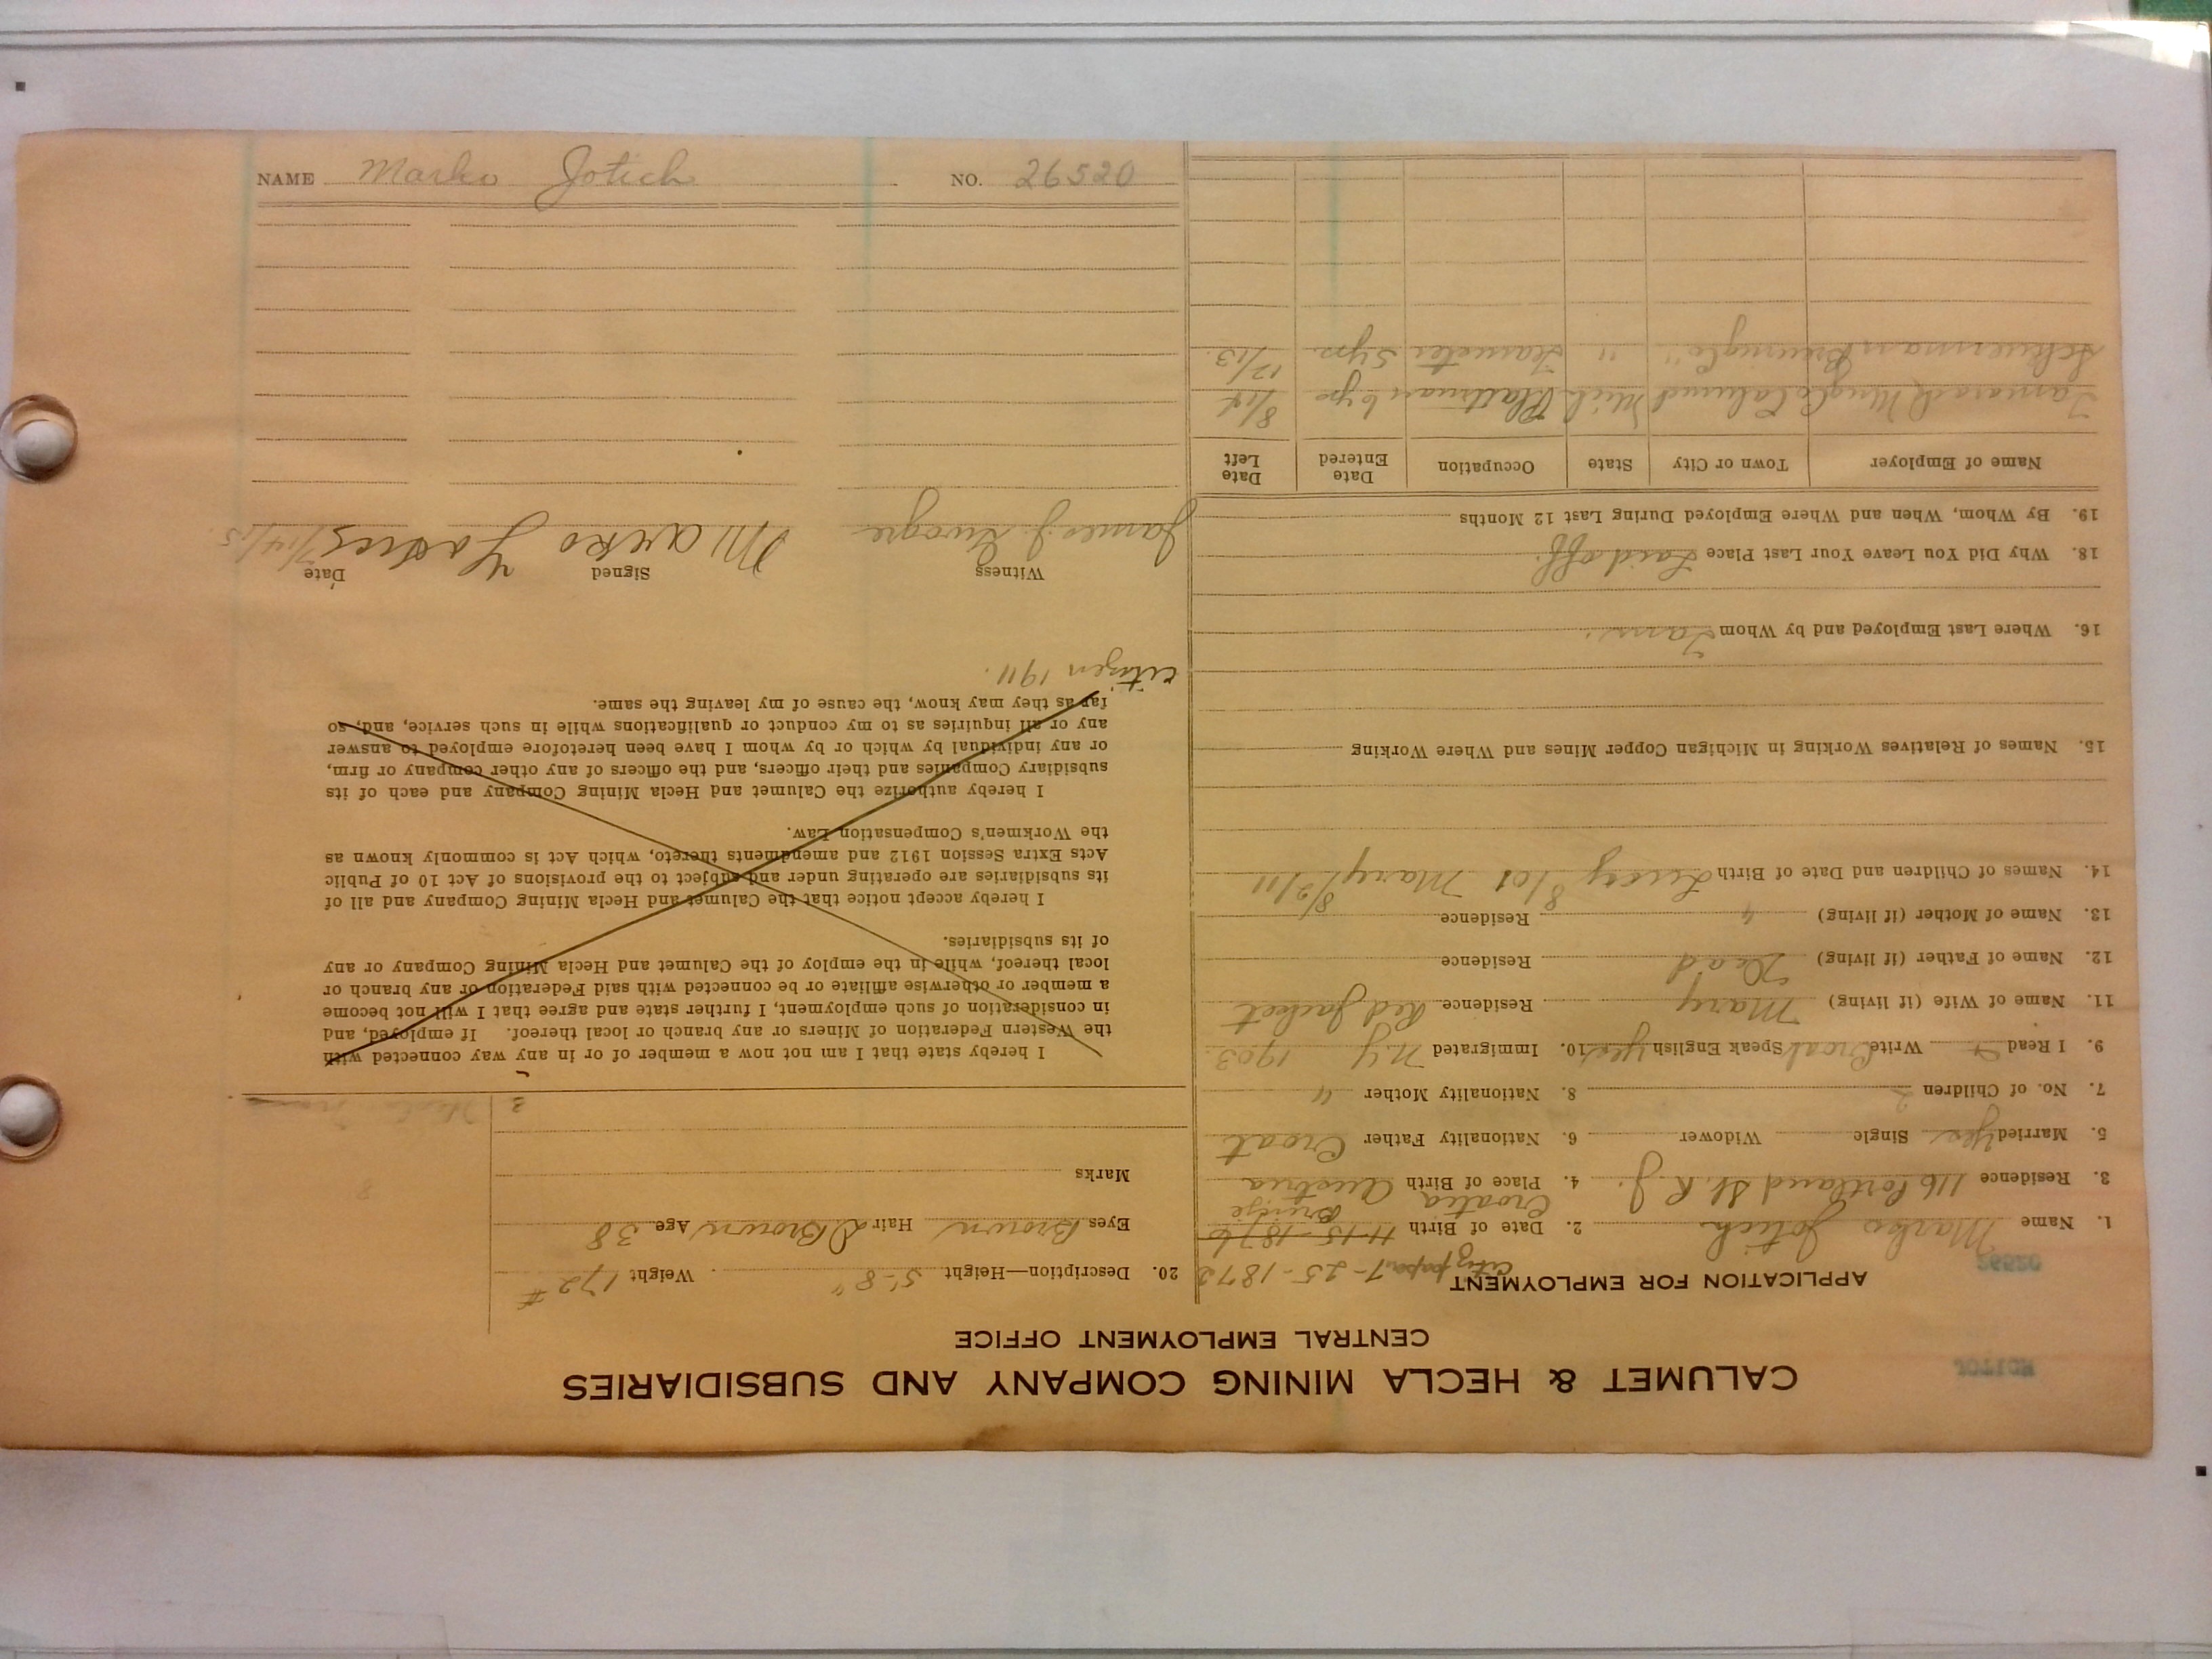 CALUMET & HECLA MINING COMPANY AND SUBSIDIARIES
CENTRAL EMPLOYMENT OFFICE
26520
APPLICATION FOR EMPLOYMENT
7-25-1872
1. Name Marko Jotich 2. Date of Birth 11-15-1876
Croatia
3. Residence 116 Portland St. R. J. 4. Place of Birth Austria
5. Married Yes Single Widower 6. Nationality Father Croat
7. No. of Children 2 8. Nationality Mother "
9. I Read Write Croat Speak English yes 10. Immigrated N.Y. 1903
11. Name of Wife (if living) Mary Residence Red Jacket
12. Name of Father (if living) Dead Residence
13. Name of Mother (if living) " Residence
14. Names of Children and Date of Birth Lucy 8/01 Mary 8/2/11
15. Names of Relatives Working in Michigan Copper Mines and Where Working
16. Where Last Employed and by Whom Tam.
18. Why Did You Leave Your Last Place Laid off.
19. By Whom, When and Where Employed During Last 12 Months
Name of Employer Town or City State Occupation Date Entered Date Left
Tamarack Mng Co Calumet Mich 8/14
" " Teamster 5 yrs. 12/13.
20. Description—Height 5'-8" Weight 172 #
Eyes Brown Hair D Brown Age 38
Marks
I hereby state that I am not now a member of or in any way connected with
the Western Federation of Miners or any branch or local thereof. If employed, and
in consideration of such employment, I further state and agree that I will not become
a member or otherwise affiliate or be connected with said Federation or any branch or
local thereof, while in the employ of the Calumet and Hecla Mining Company or any
of its subsidiaries.
I hereby accept notice that the Calumet and Hecla Mining Company and all of
its subsidiaries are operating under and subject to the provisions of Act 10 of Public
Acts Extra Session 1912 and amendments thereto, which Act is commonly known as
the Workmen's Compensation Law.
I hereby authorize the Calumet and Hecla Mining Company and each of its
subsidiary Companies and their officers, and the officers of any other company or firm,
or any individual by which or by whom I have been heretofore employed to answer
any or all inquiries as to my conduct or qualifications while in such service, and, so
far as they may know, the cause of my leaving the same.
citizen 1911.
Witness Signed Date
James J. Marko 7/14/15.
NAME Marko Jotich NO. 26520